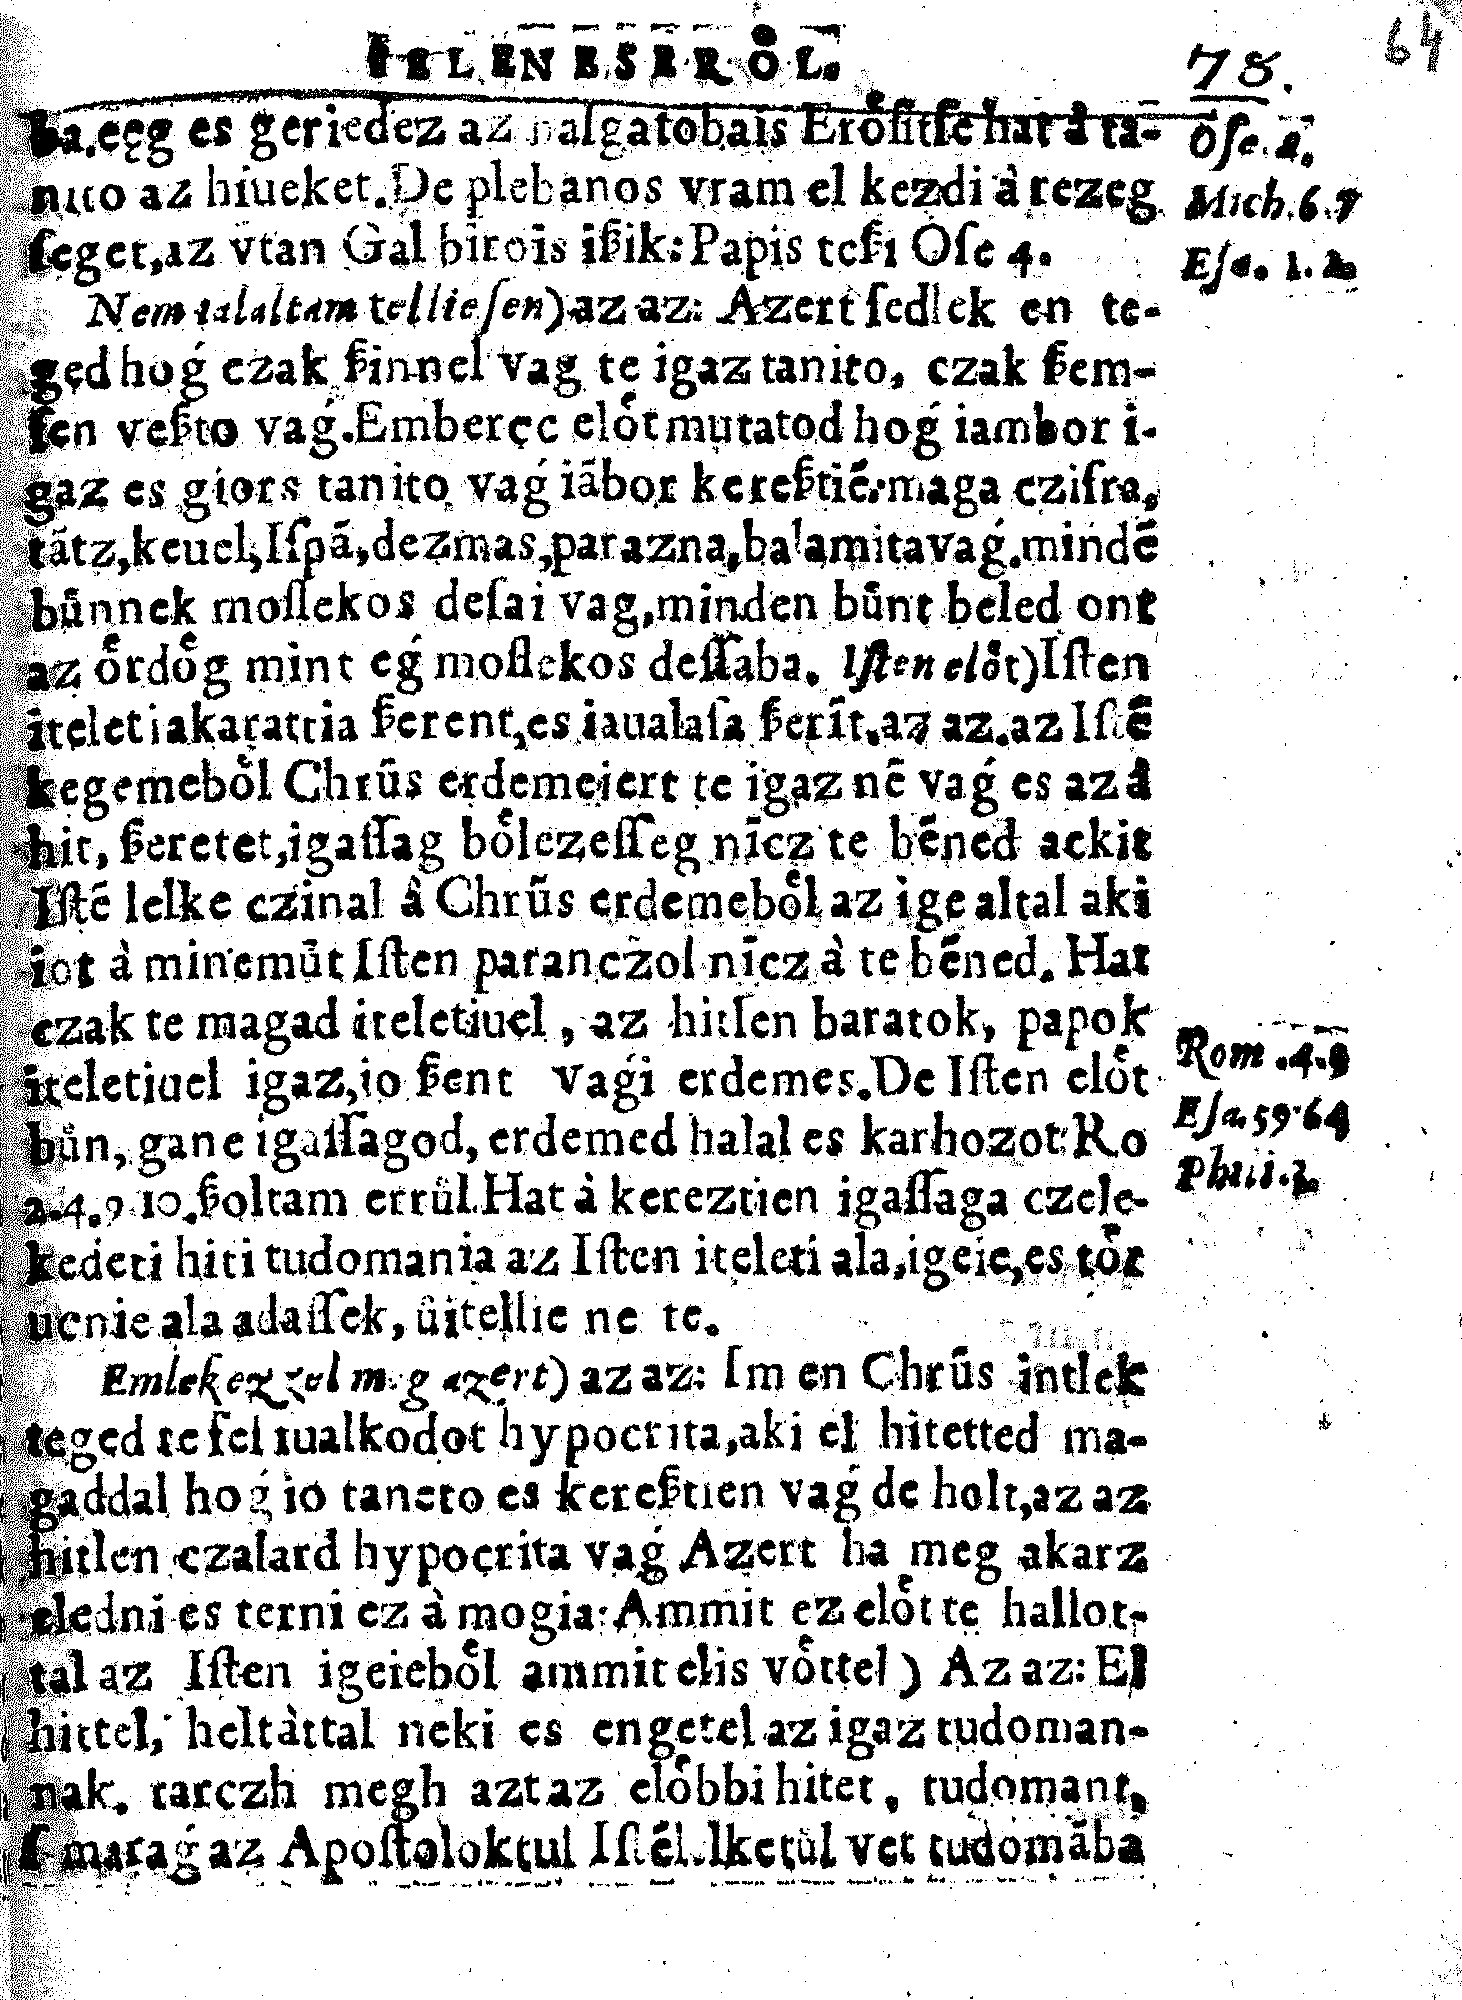 IELENESEROͤL.
78.
64
ba.eęg es geriedez az nalgatobais Eroͤſitſe hat å ta-
nito az hiueket.De plebanos vram el kezdi à rezeg
ſeget,az vtan Gal birois iſzik:Papis teſzi Oſe 4.
Nem talaltam tellieſen) az az: Azert ſedlek en te-
ged hoǵ czak ſzinnel vag te igaz tanito, czak ſzem-
ſen veſzto vaǵ.Emberęc eloͤt mutatod hoǵ iambor i-
gaz es giors tanito vaǵ iābor kereſztiē.maga cziſra,
tātz,keuel,Iſpā,dezmas,parazna,balamita vaǵ.mindē
bűnnek moſlekos deſai vag,minden bűnt beled ont
az oͤrdoͤg mint eǵ moſlekos deſſaba. Iſten eloͤt)Iſten
iteleti akarattia ſzerent,es iaualaſa ſzerīt.az az.az Iſtē
kegemeboͤl Chrūs erdemeiert te igaz nē vaǵ es az å
hit, ſzeretet,igaſſag boͤlezeſſeg nīcz te bēned ackit
Iſtē lelke czinal å Chrūs erdemeboͤl az ige altal aki
iot à minemūt Iſten paranczol nīcz à te bēned. Hat
czak te magad iteletiuel, az hitlen baratok, papok
iteletiuel igaz,io ſzent vaǵi erdemes.De Iſten eloͤt
būn, gane igaſſagod, erdemed halal es karhozot:Ro
2.4.9 10.ſzoltam errūl.Hat à kereztien igaſſaga czele-
kedeti hiti tudomania az Iſten iteleti ala,igeie,es toͤr
uenie ala adaſſek, ūitellie ne te.
Emlekezzel meg azert) az az: Im en Chrūs intlek
teged te fel fualkodot hypocrita,aki el hitetted ma-
gaddal hoǵ io taneto es kereſztien vaǵ de holt,az az
hitlen czalard hypocrita vaǵ Azert ha meg akarz
eledni es terni ez à mogia:Ammit ez eloͤt te hallot-
tal az Iſten igeieboͤl ammit elis voͤttel) Az az: El
hittel, heltàttal neki es engetel az igaz tudoman-
nak. tarczh megh azt az eloͤbbi hitet, tudomant,
ſ maraǵ az Apoſtoloktul Iſtēl.lketūl vet tudomāba
Oſe.4.
Mich.6.7
Eſa. 1. 2.
Rom .4.9
Eſa.59.64
Phili.3.